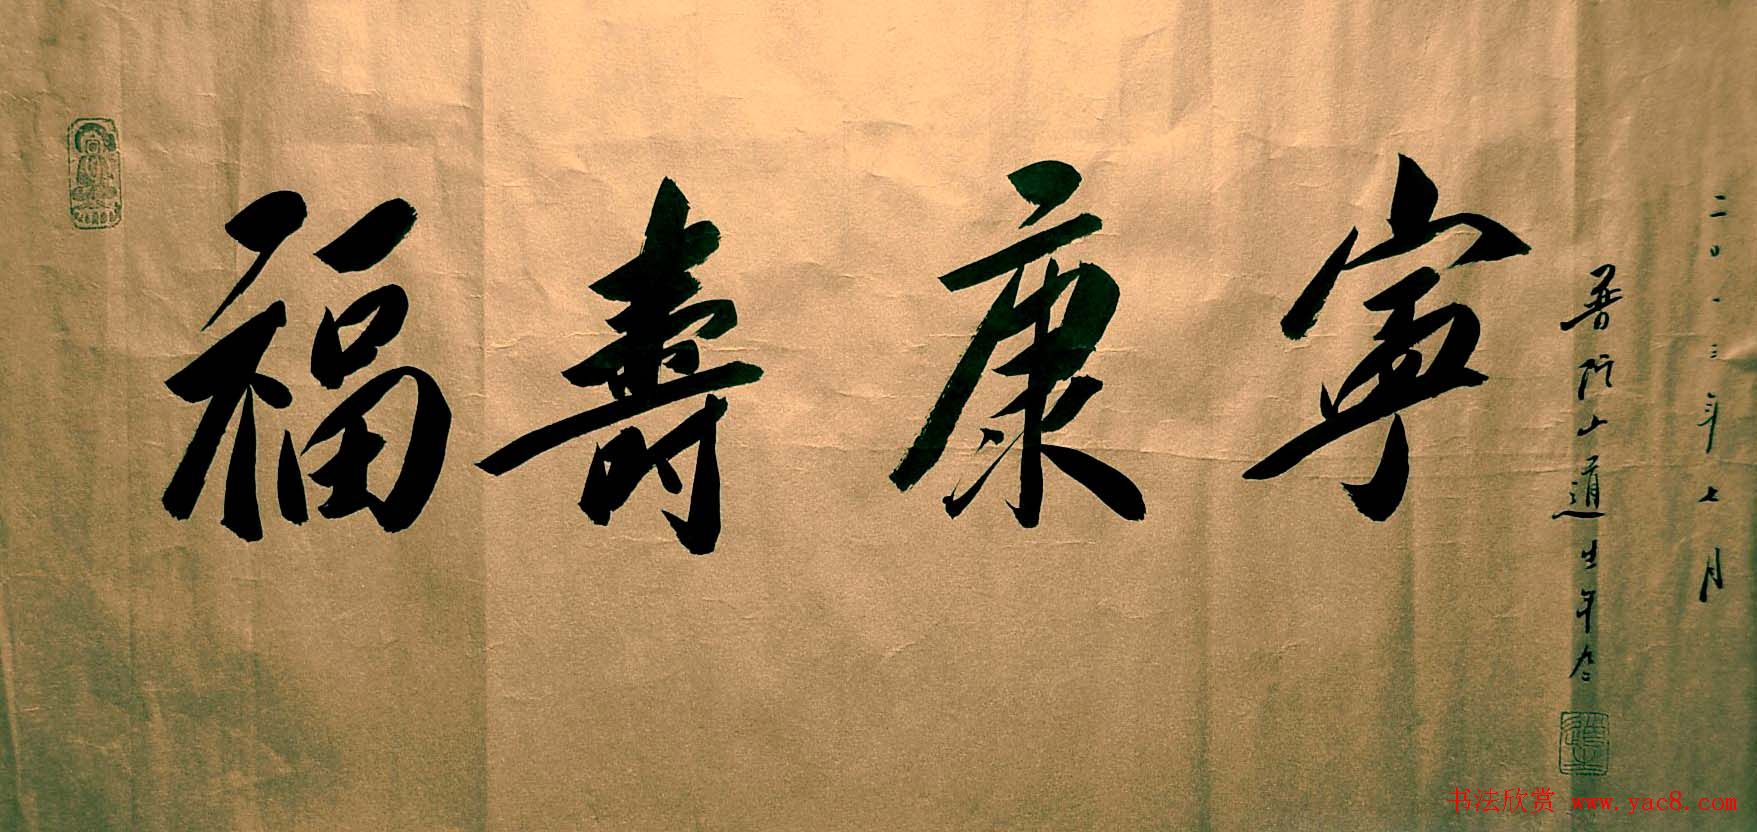 福壽康寧
二〇一三年七月
普陀山道生年仝
书法欣赏 www.yac8.com